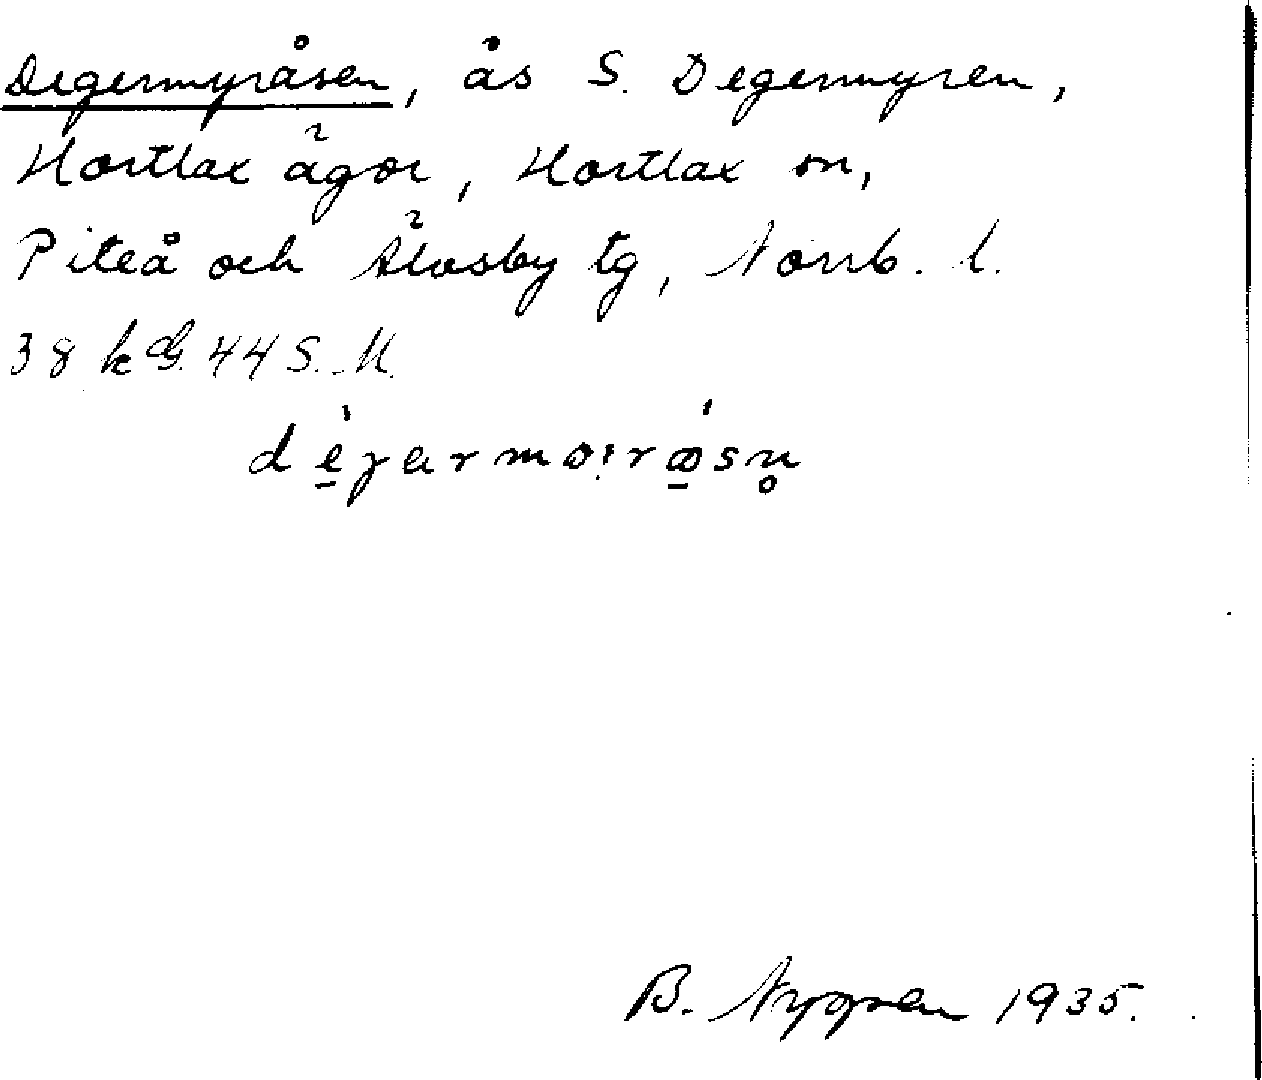 Degermyråsen, ås S. Degermyren,
Hortlax ägor, Hortlax sn,
Piteå och Älvsby tg, Norrb. l.
38 k G. 44 S. M.
B. Nygren 1935.